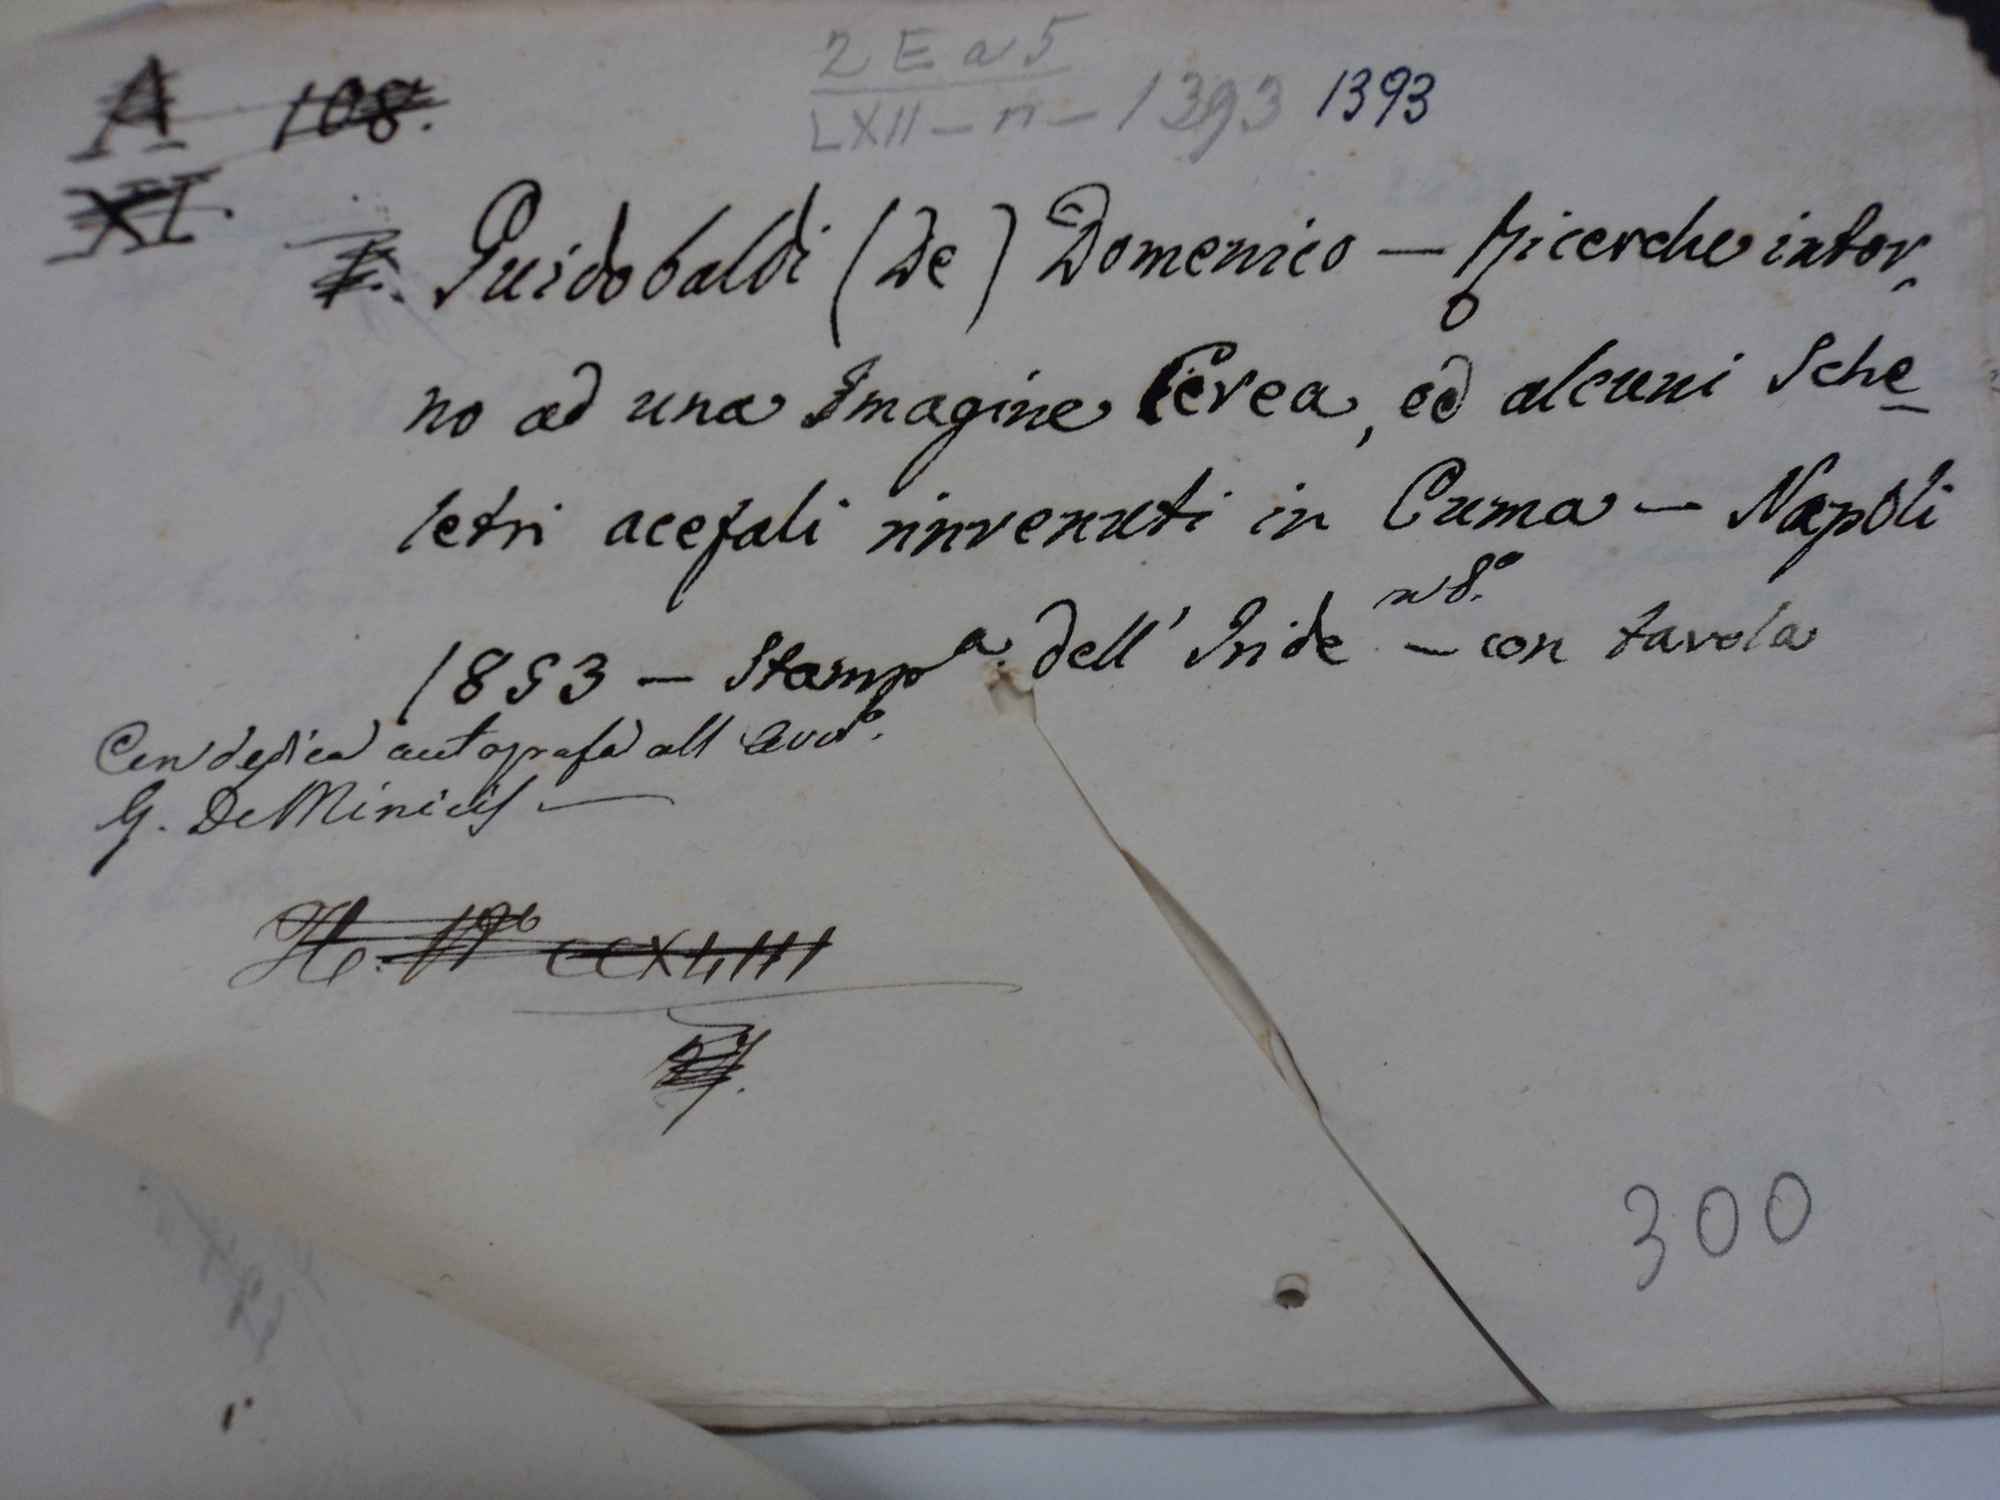 2 E a 5
A 108.
LXII - n - 1393 1393
XI.
Guidobaldi (De) Domenico — Ricerche intor-
no ad una Imagine Cerea, ed alcuni Sche-
letri acefali rinvenuti in Cuma — Napoli
1853 — Stampa. dell' Iride in 8.° — con tavola
Con dedica autografa all' Avv.°
G. De Minicis —
H. N° CCXLIII
300